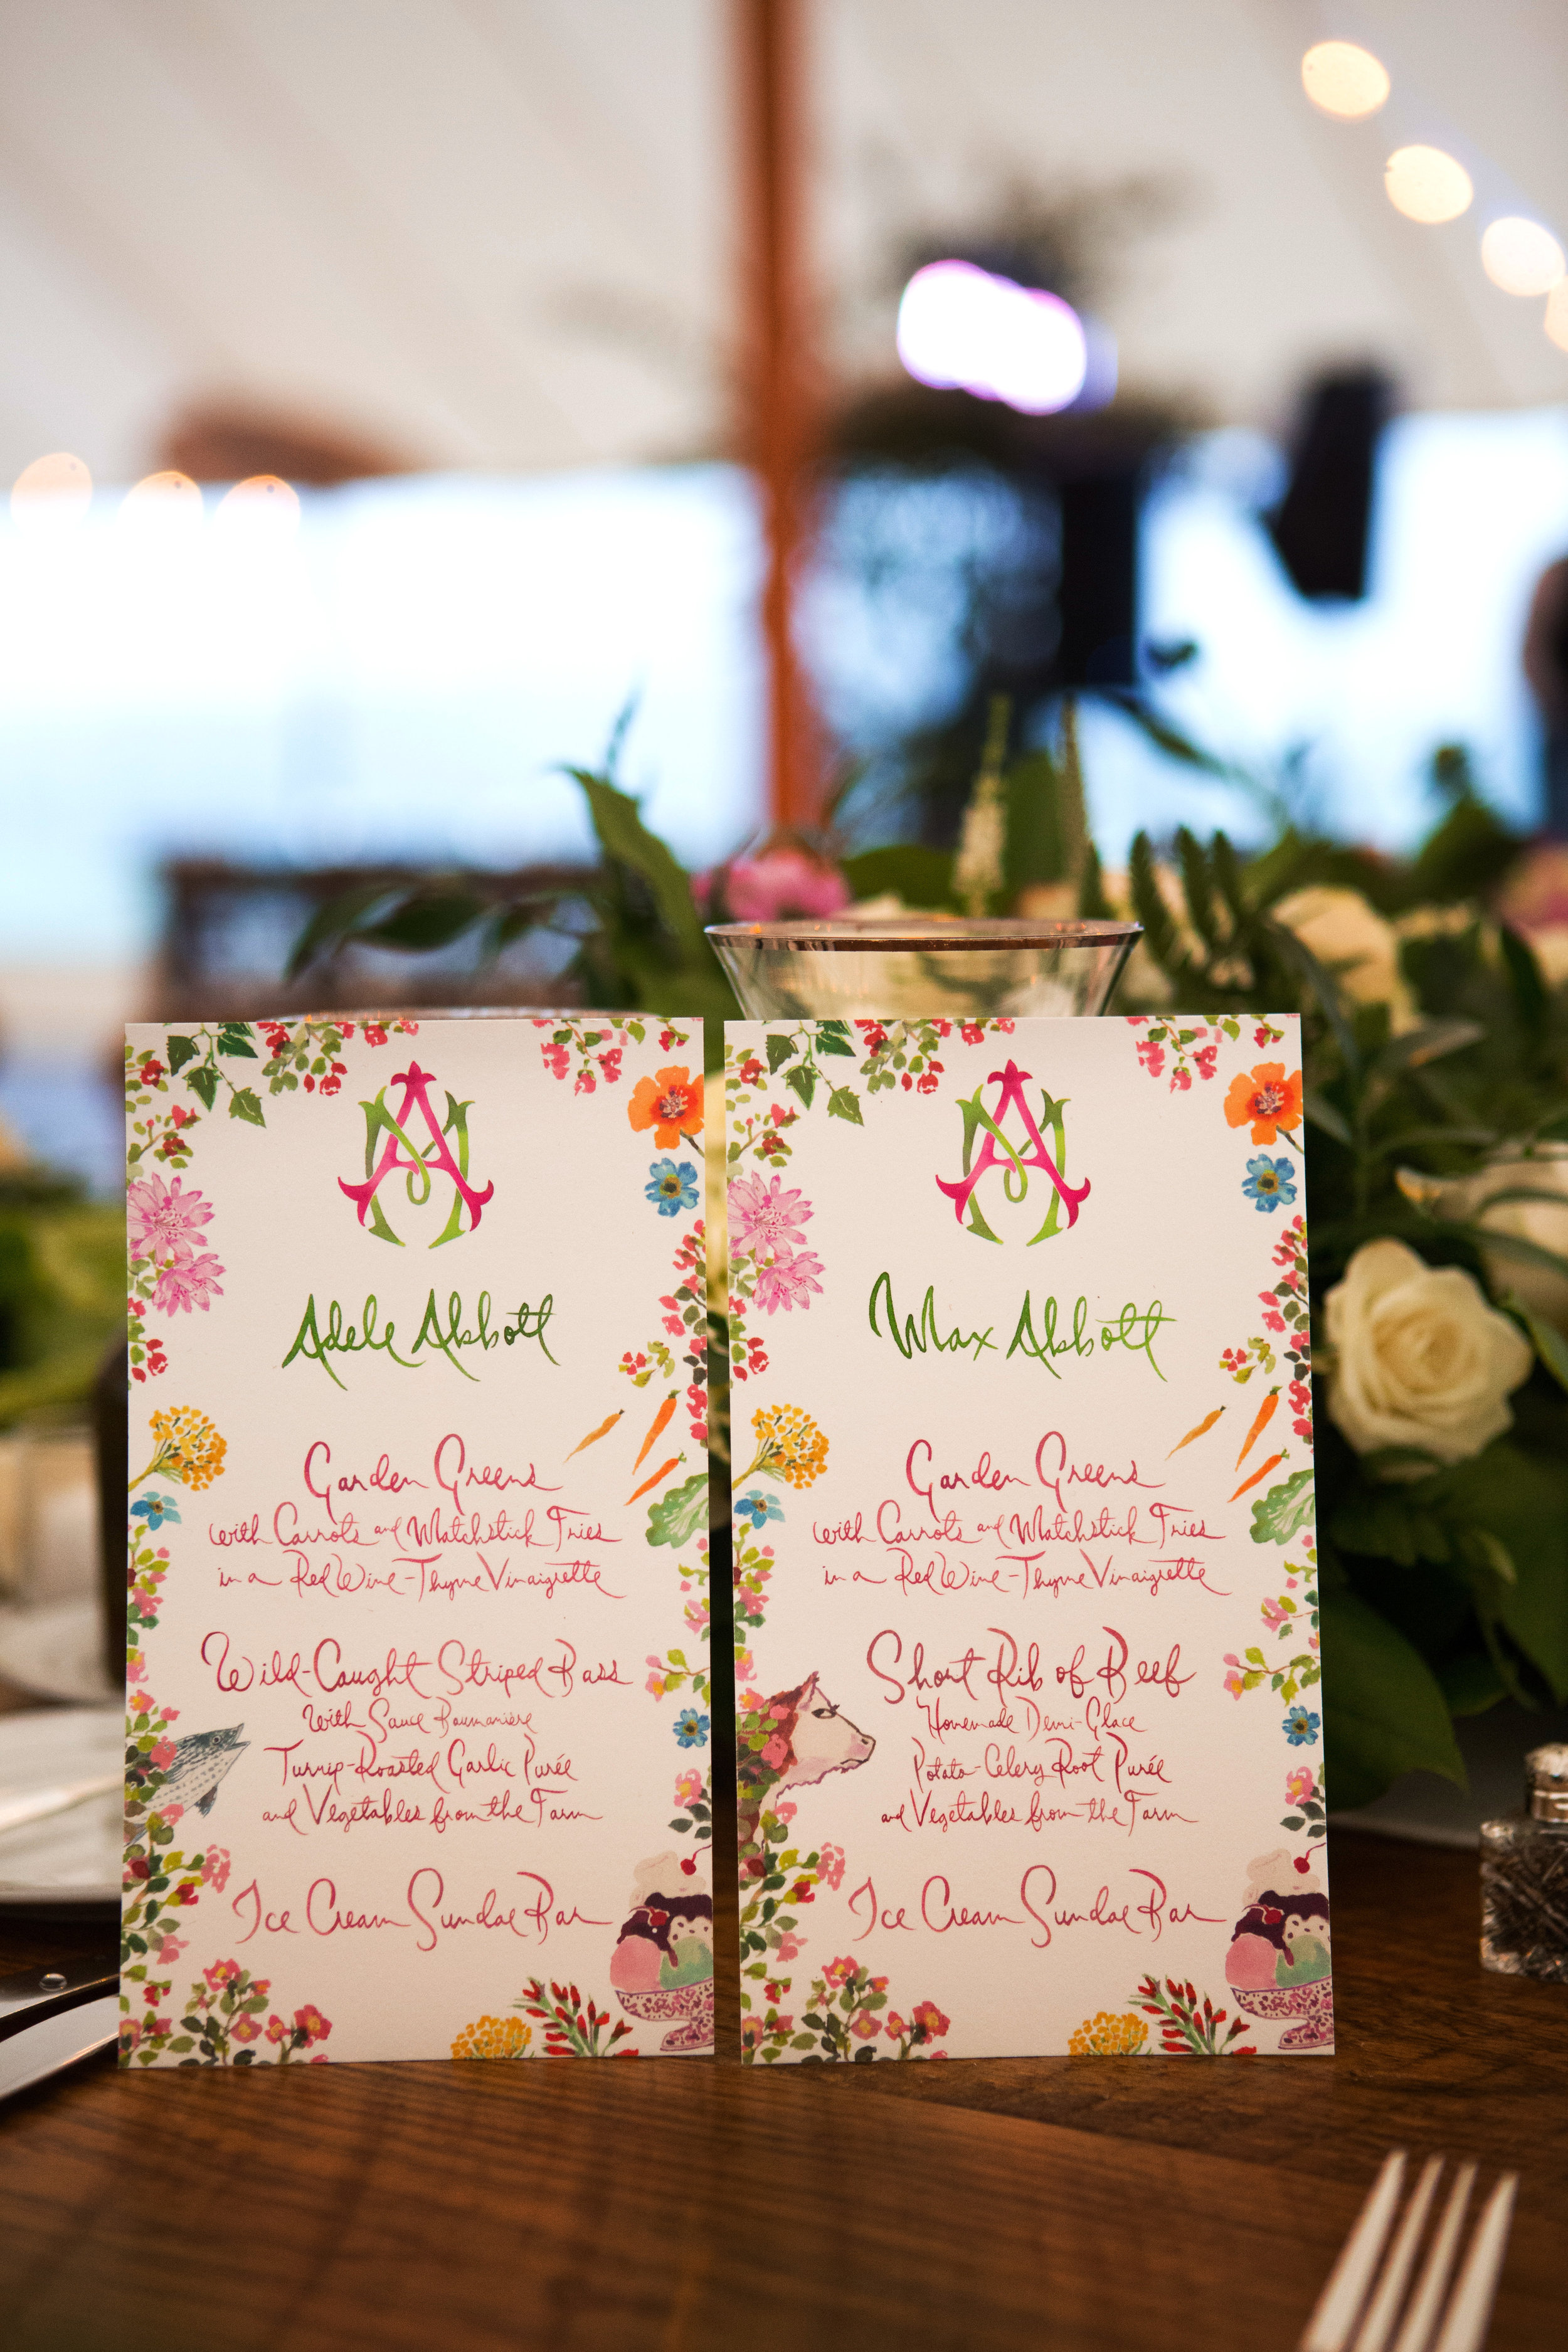 Adele Abbott
Garden Greens
with Carrots and Matchstick Fries
in a Red Wine-Thyme Vinaigrette
Wild-Caught Striped Bass
With Sauce Baumanière
Turnip-Roasted Garlic Purée
and Vegetables from the Farm
Ice Cream Sundae Bar
Max Abbott
Garden Greens
with Carrots and Matchstick Fries
in a Red Wine-Thyme Vinaigrette
Short Rib of Beef
Homemade Demi-Glace
Potato-Celery Root Purée
and Vegetables from the Farm
Ice Cream Sundae Bar